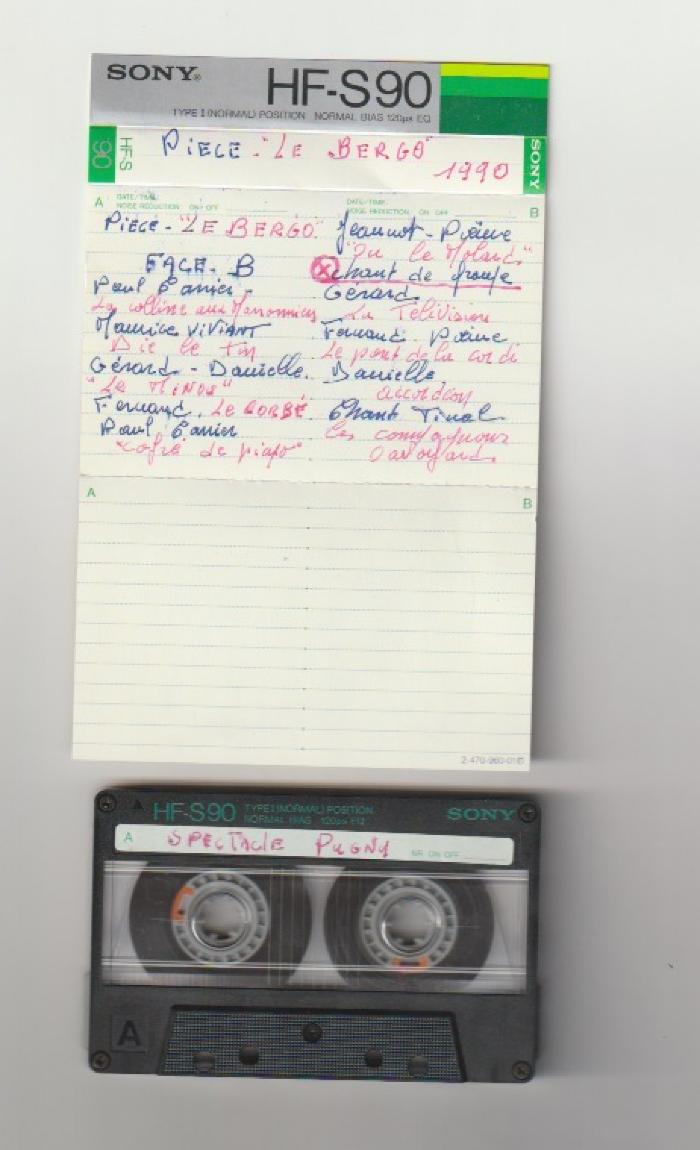 SONY®
HF-S90
TYPE I (NORMAL) POSITION NORMAL BIAS 120µs EQ
90
HF-S
PIECE - "LE BERGO"
1990
SONY
A
DATE/TIME:
NOISE REDUCTION ON OFF
PIECE - "LE BERGO"
FACE. B
Paul
La colline aux
Maurice ViViANT
Gérard - Danielle
"Le MiNOU"
Fernand. Le CORBÉ
Paul
"café de
DATE/TIME:
NOISE REDUCTION ON OFF
B
Jeannot -
chant de groupe
Gérard
La Télévision
Fernand
Le pont de la
Danielle
accordéon
Chant Final
A
B
2-470-960-01
HF-S90 TYPE I (NORMAL) POSITION
NORMAL BIAS 120µs EQ
SONY
A
SPECTACLE PUGNY
NR ON OFF
A